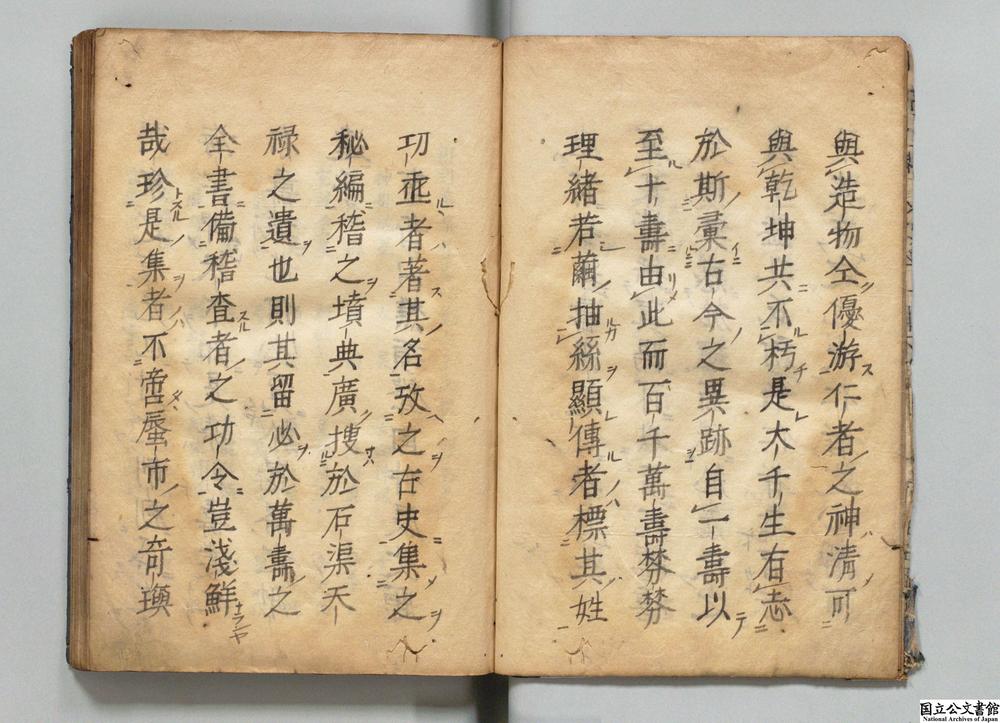 與造物仝優游仁者之神清可
與乾坤共不朽是大千生有志
於斯彙古今之異跡自一壽以
至十壽由此而百千萬壽棼棼
理緒若繭抽絲顯傳者標其姓
功丕者著其名攷之古史集之
秘編稽之墳典廣搜於石渠天
禄之遺也則其留必於萬壽之
全書備稽査者之功令豈淺鮮
哉珍是集者不啻蜃市之奇
国立公文書館
National Archives of Japan